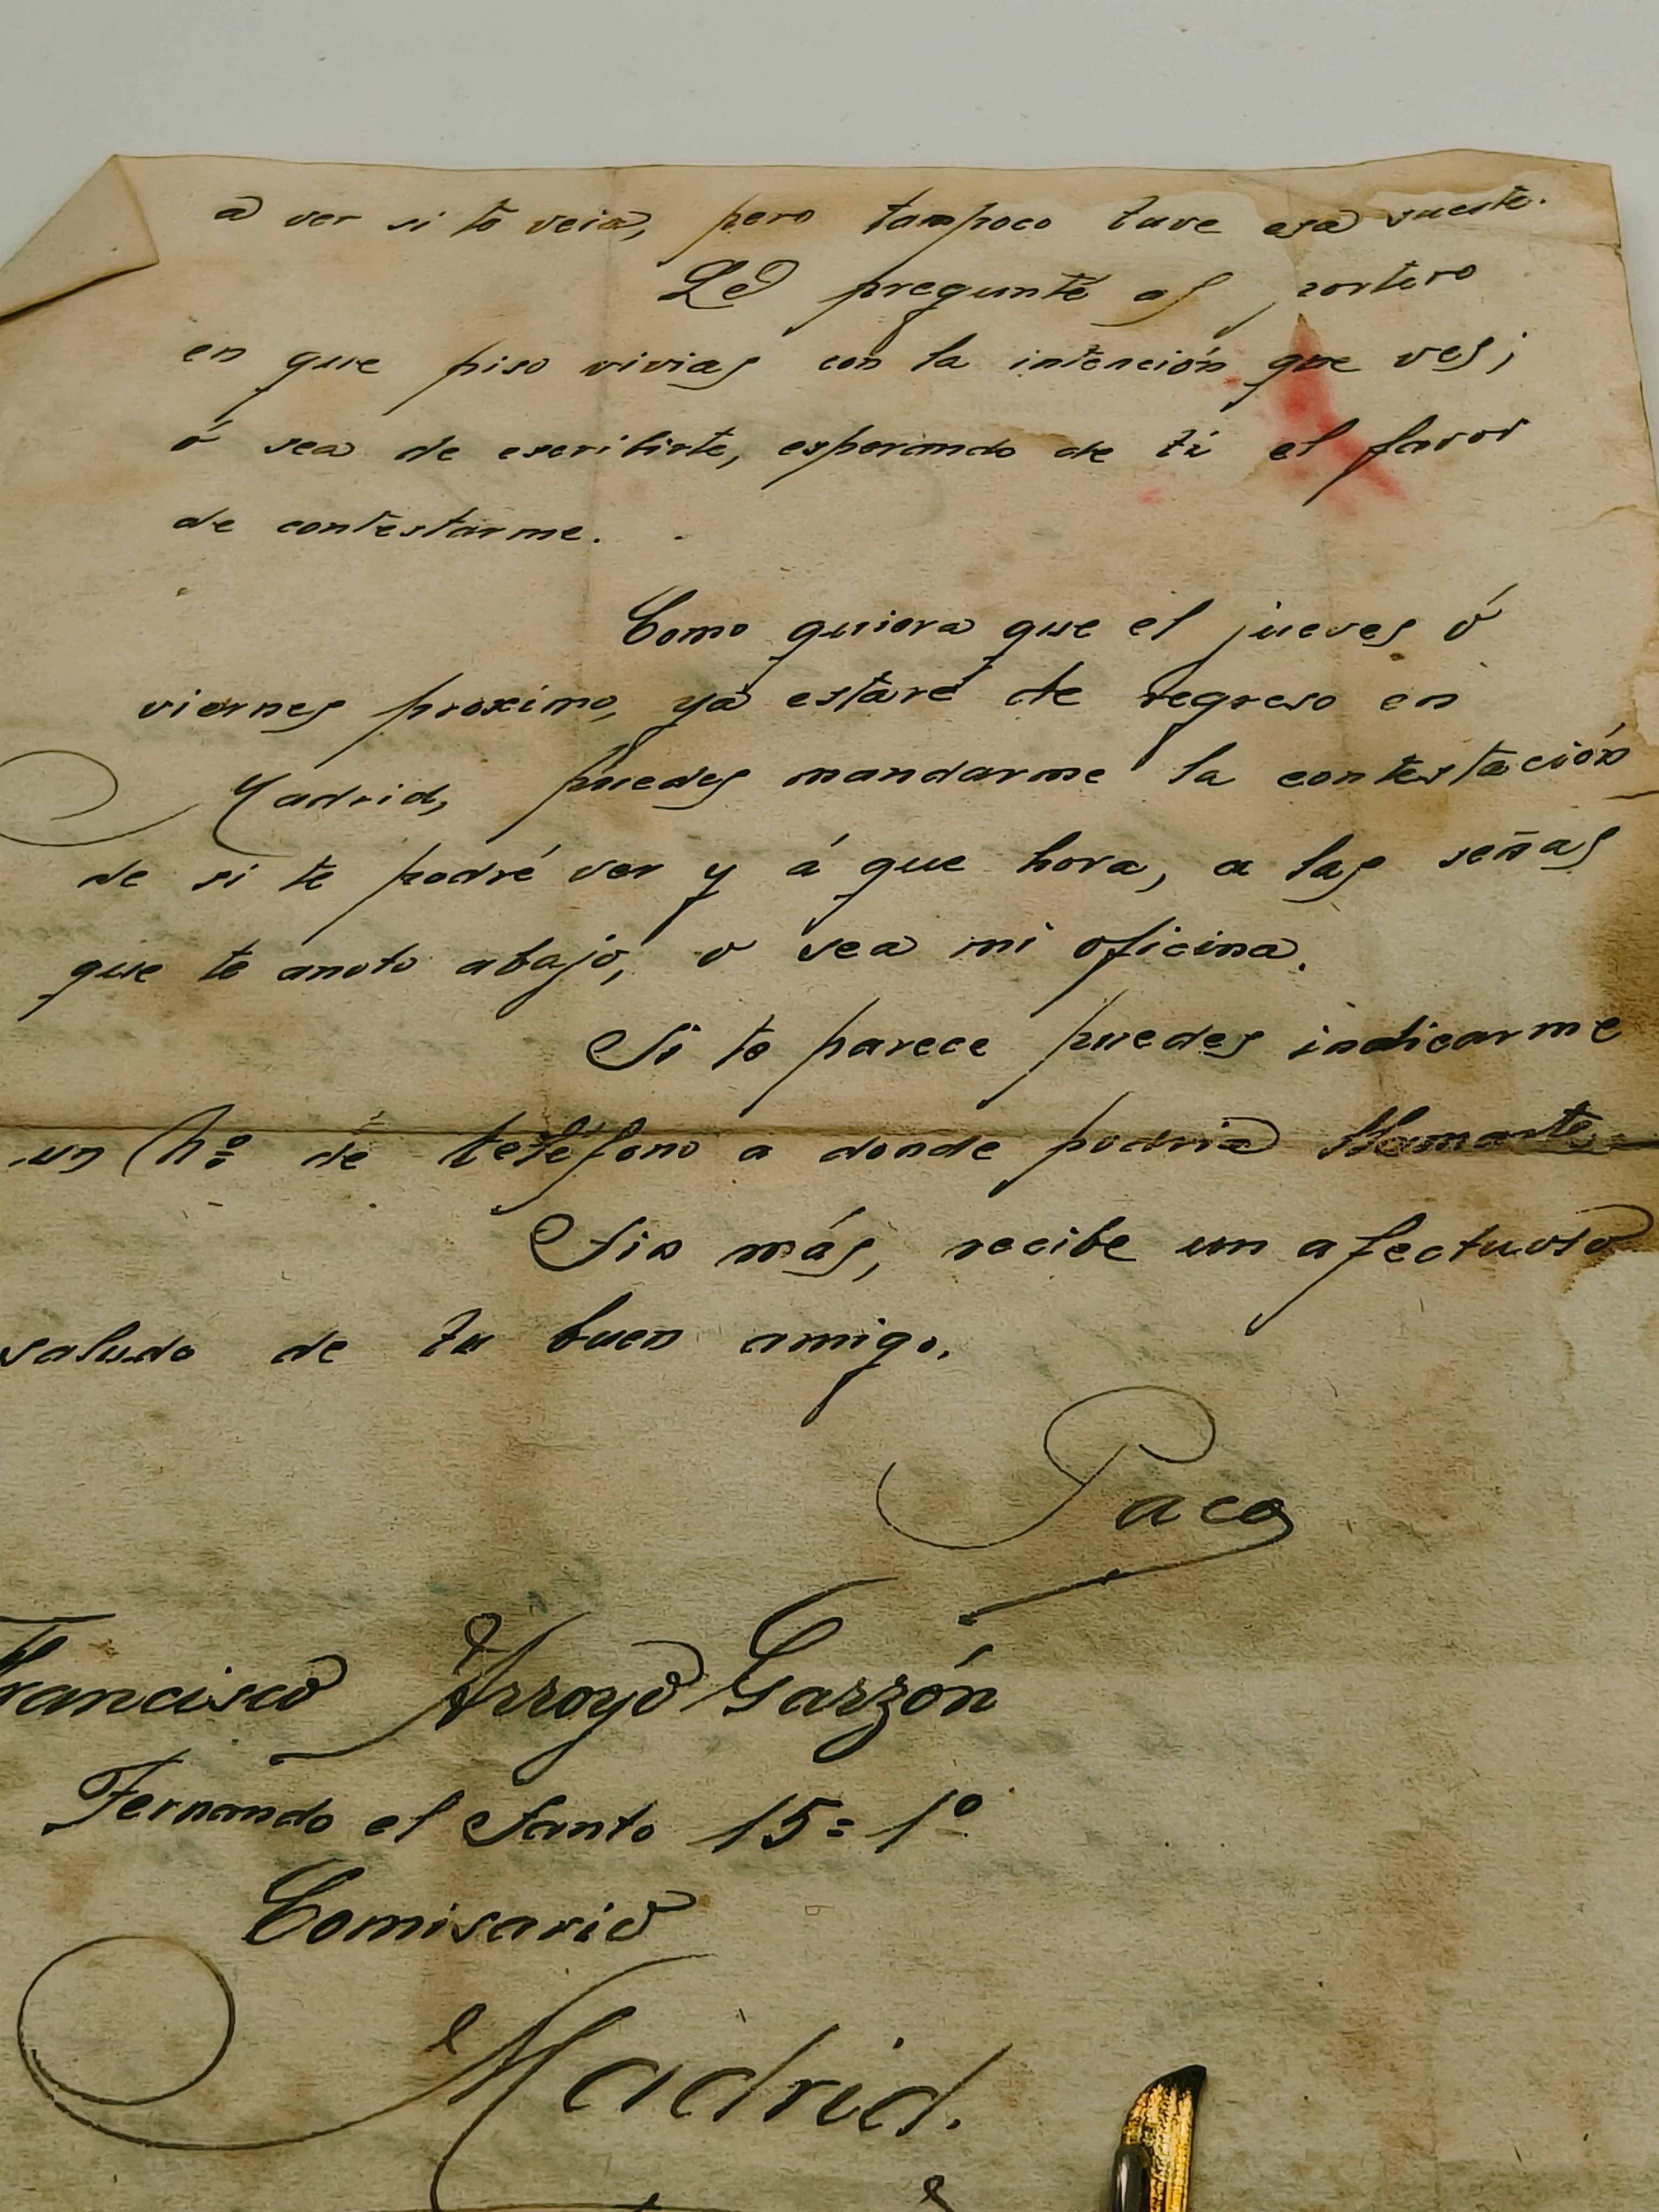 a ver si te veia, pero tampoco tuve esa suerte.
Le pregunté al portero
en que piso vivias con la intención que ves;
ó sea de escribirte, esperando de ti el favor
de contestarme.
Como quiera que el jueves ó
viernes proximo, ya estaré de regreso en
Madrid, puedes mandarme la contestación
de si te podré ver y á que hora, a las señas
que te anoto abajo, o sea mi oficina.
Si te parece puedes indicarme
un Nº de teléfono a donde podria llamarte.
Sin más, recibe un afectuoso
saludo de tu buen amigo.
Paco
Francisco Arroyo Garzón
Fernando el Santo 15 = 1º
Comisario
Madrid.